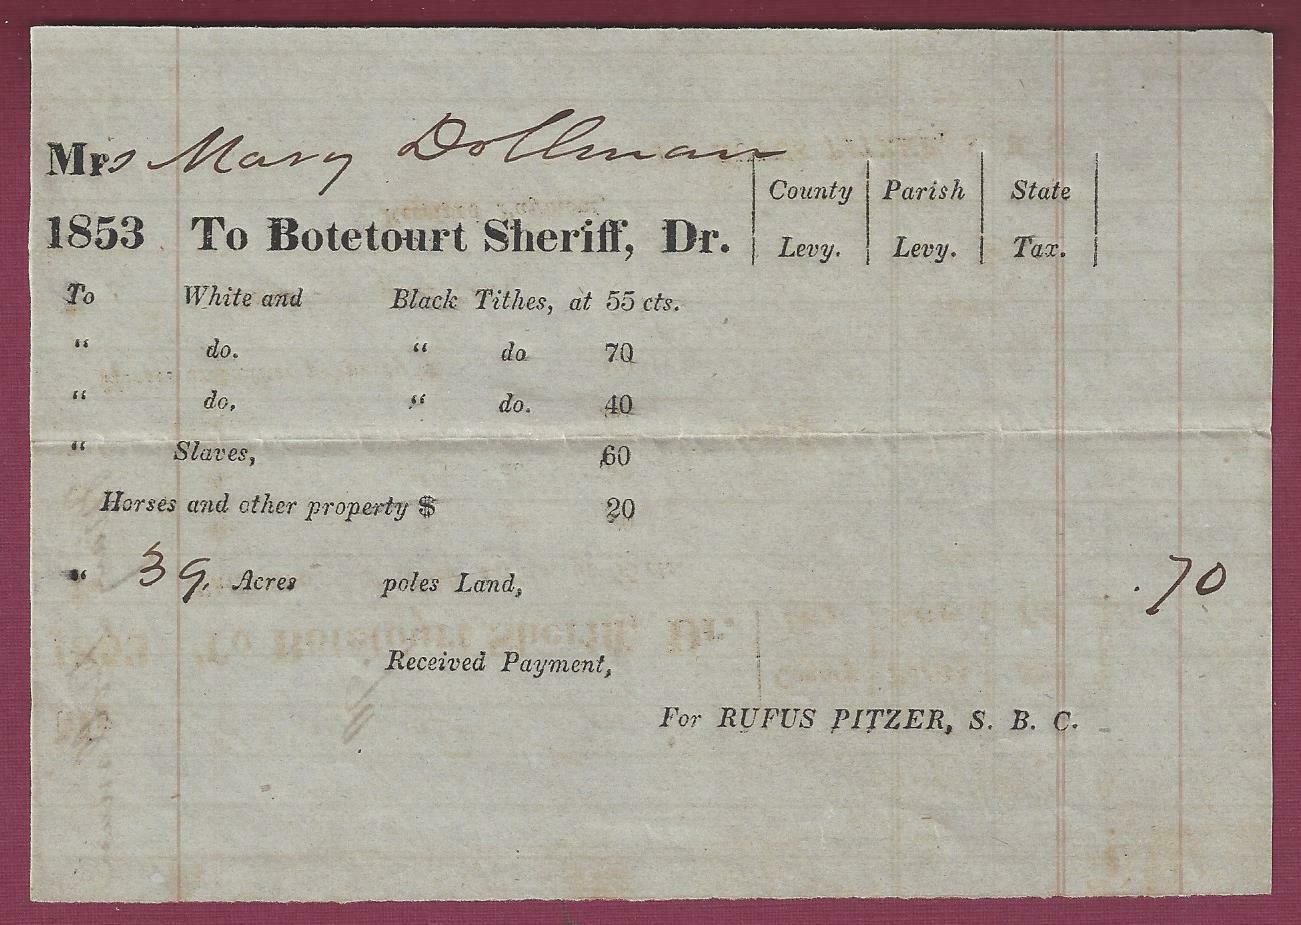 Mrs Mary Dollman
County Parish State
1853 To Botetourt Sheriff, Dr. Levy. Levy. Tax.
To White and Black Tithes, at 55 cts.
“ do. “ do 70
“ do, “ do. 40
“ Slaves, 60
Horses and other property $ 20
“ 39, Acres poles Land, .70
Received Payment,
For RUFUS PITZER, S. B. C.